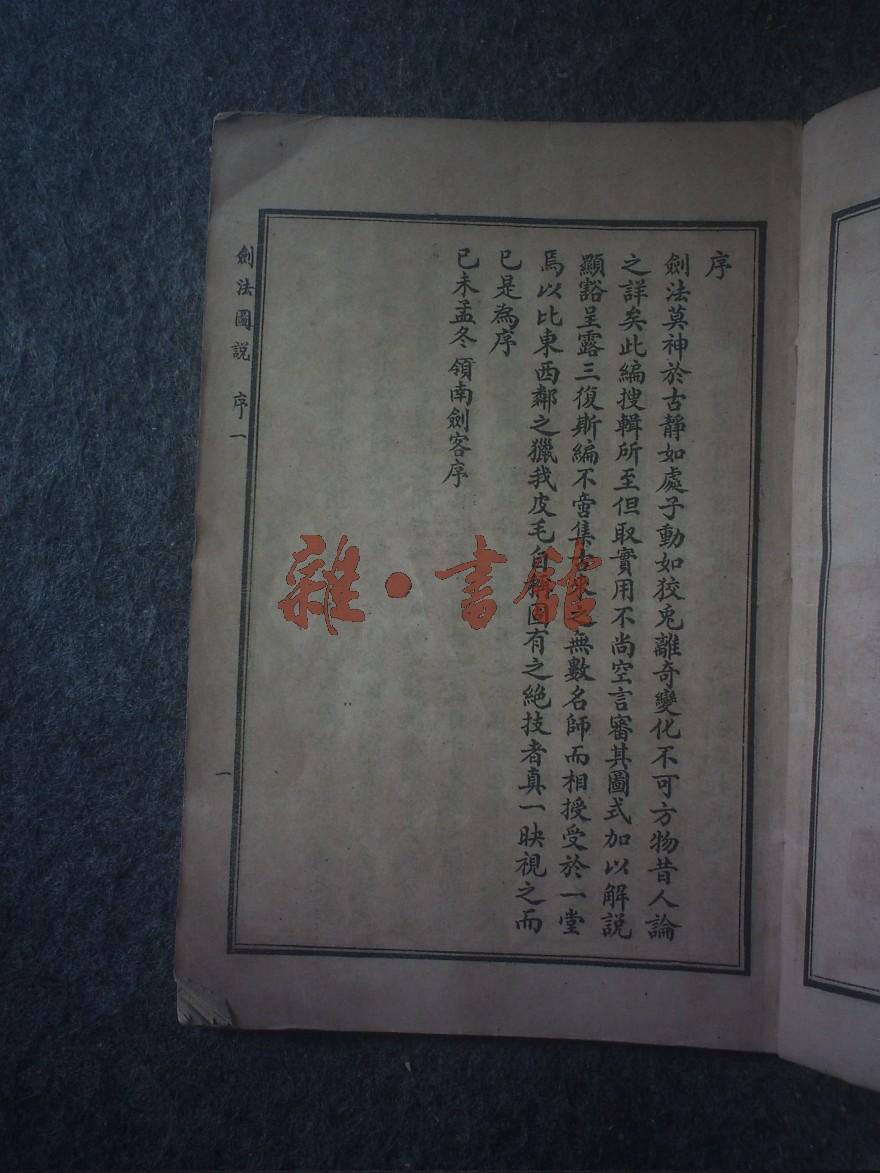 序
劍法莫神於古靜如處子動如狡兎離奇變化不可方物昔人論
之詳矣此編搜輯所至但取實用不尚空言審其圖式加以解説
顯豁呈露三復斯編不啻集古來之無數名師而相授受於一堂
焉以比東西鄰之獵我皮毛自稱固有之絶技者真一昳視之而
已是為序
己未孟冬領南劍客序
劍法圖説 序一
一
雜·書館